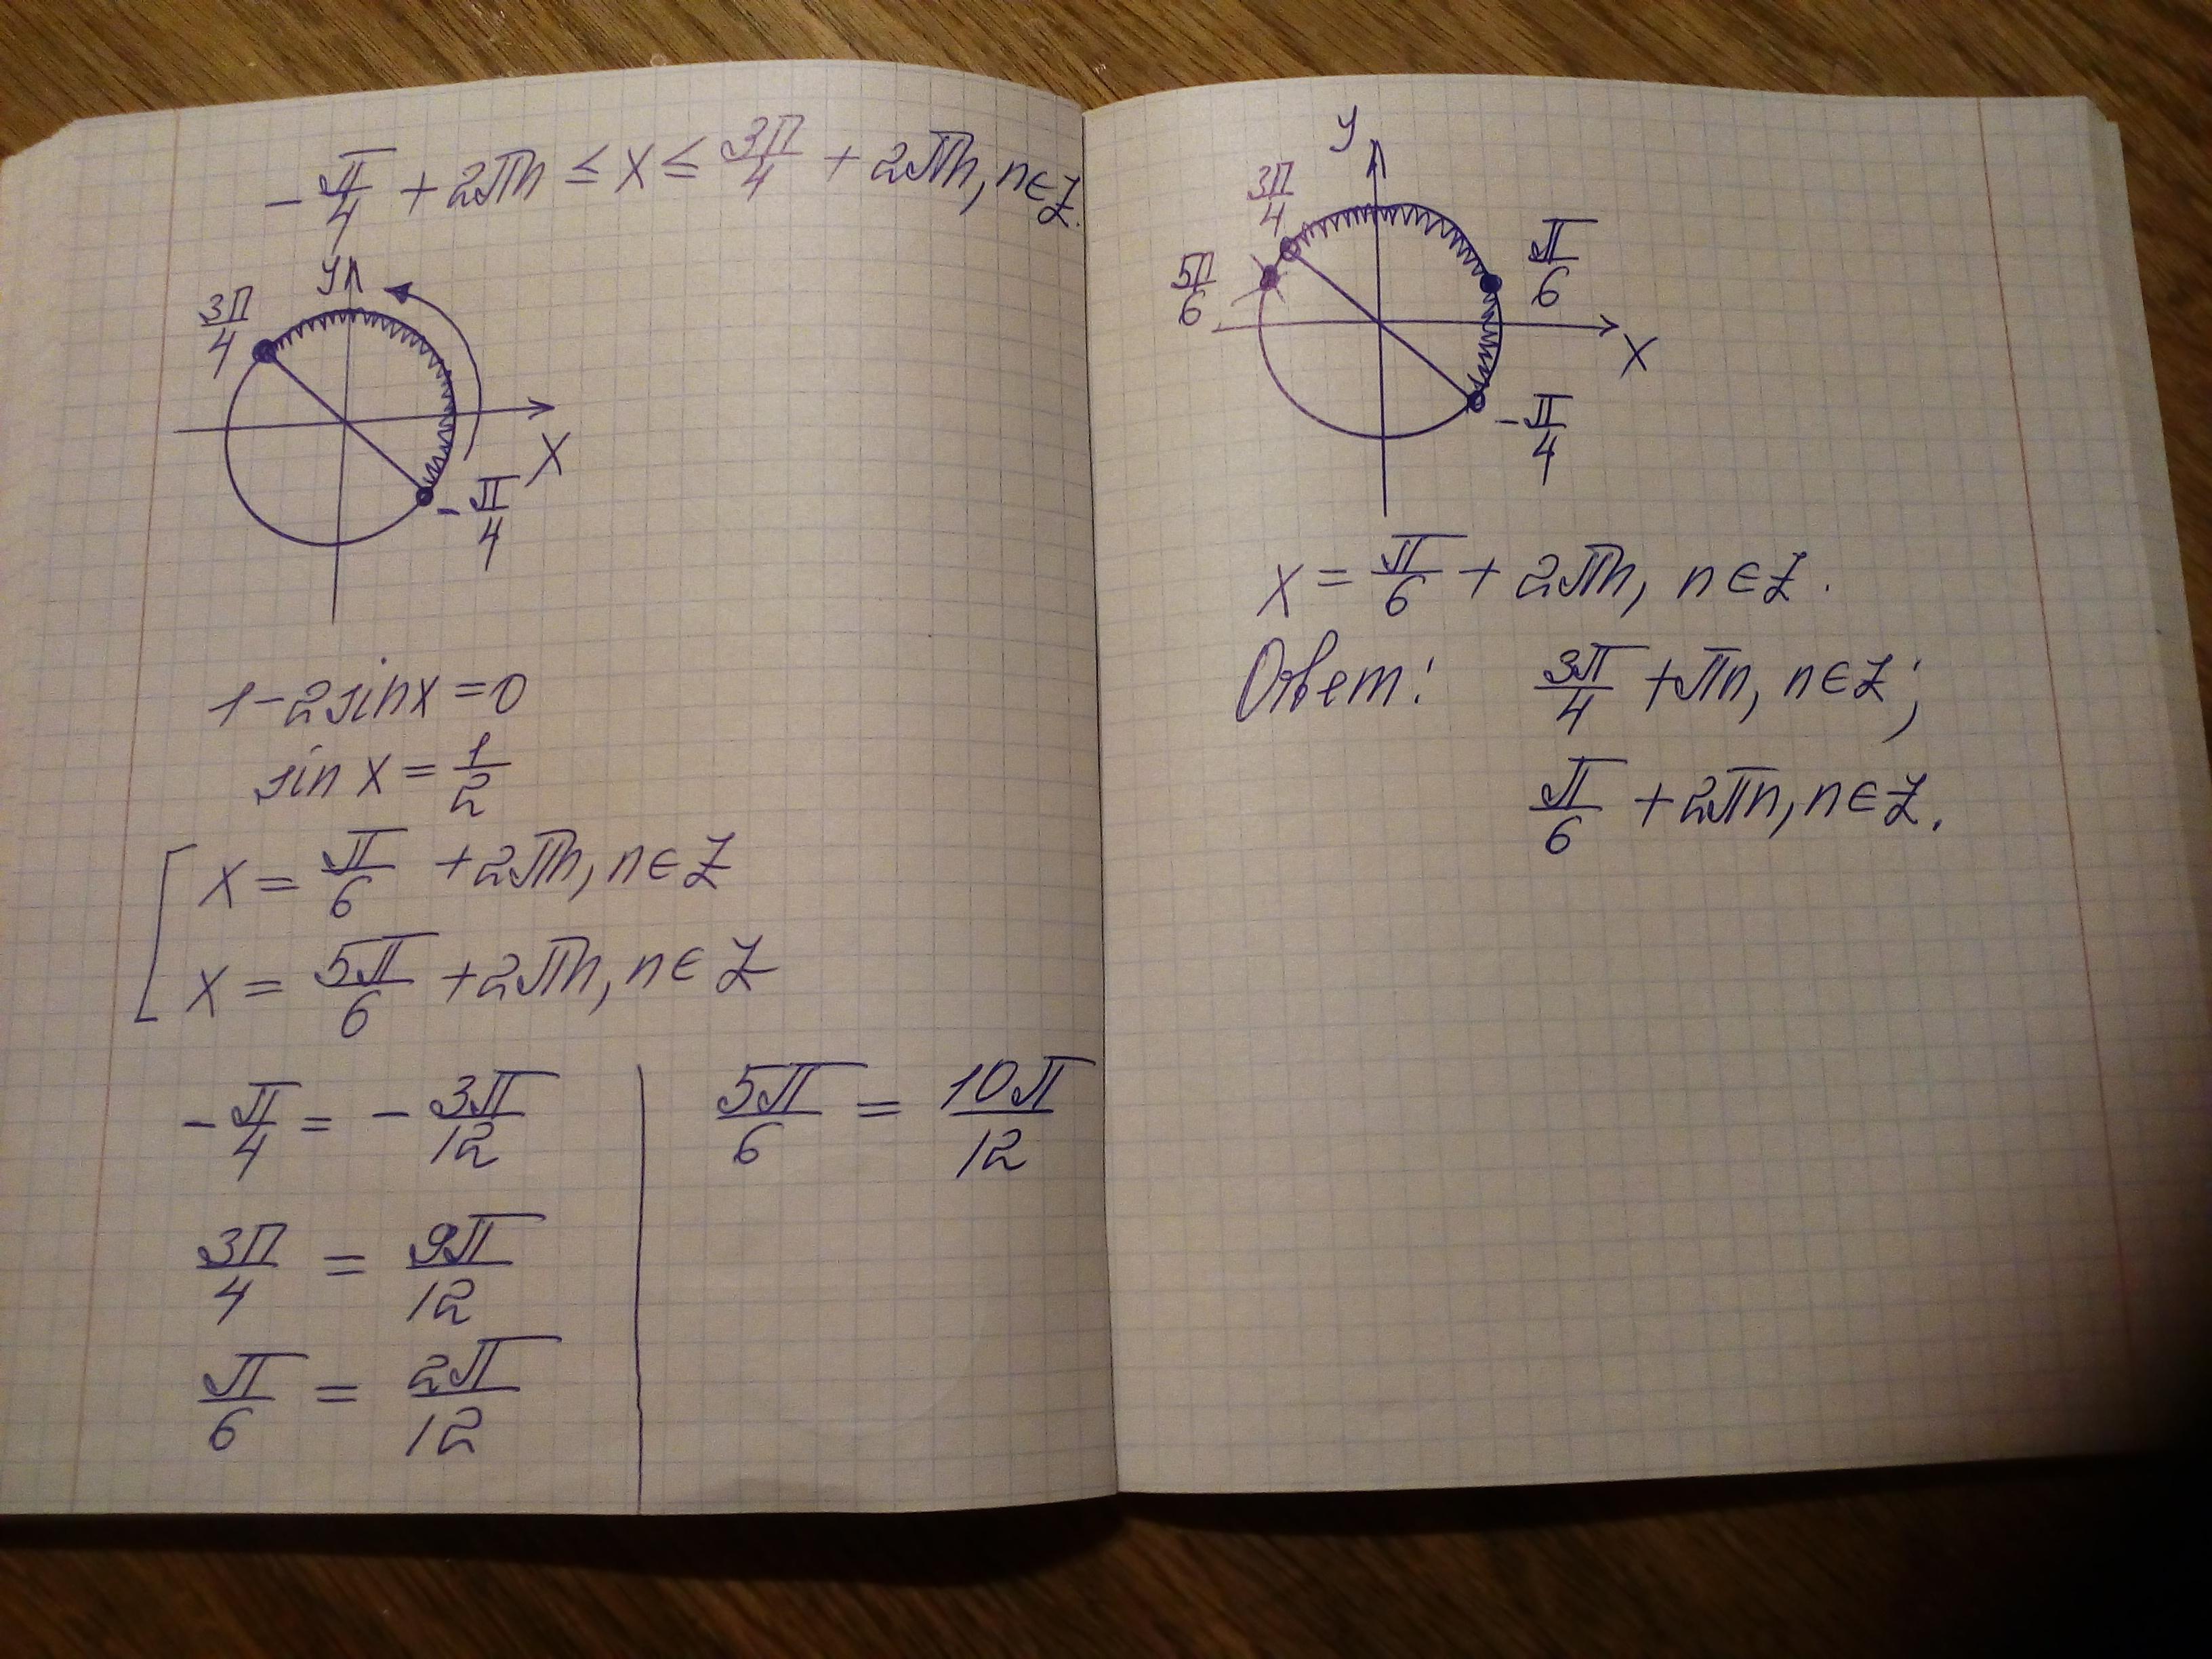 -π/4 + 2πn ≤ x ≤ 3π/4 + 2πn, n∈Z.
y
3π/4
x
-π/4
1-2sinx=0
sin x = 1/2
[ x = π/6 + 2πn, n∈Z
x = 5π/6 + 2πn, n∈Z
-π/4 = -3π/12
3π/4 = 9π/12
π/6 = 2π/12
5π/6 = 10π/12
y
3π/4
π/6
5π/6
x
-π/4
x = π/6 + 2πn, n∈Z.
Ответ: 3π/4 + πn, n∈Z;
π/6 + 2πn, n∈Z.